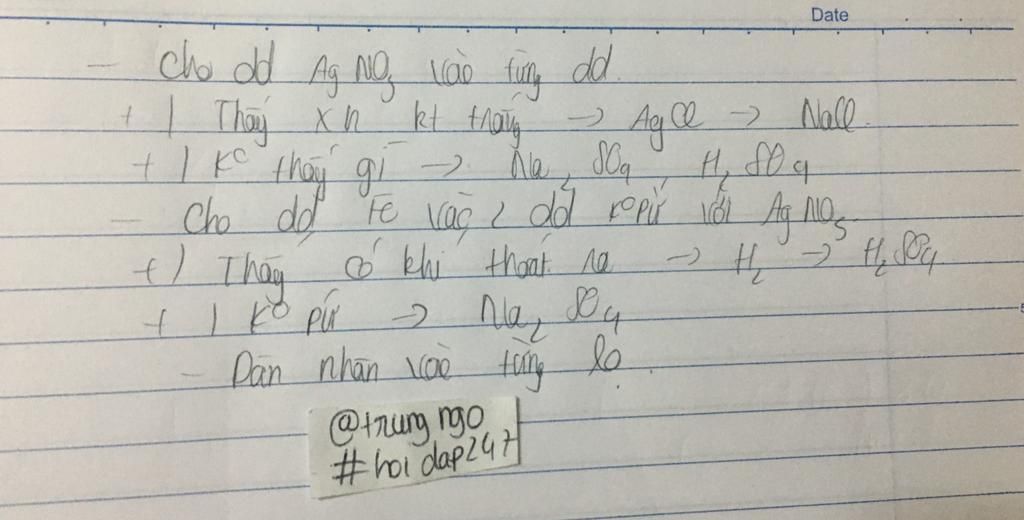 Date
- Cho dd AgNO3 vào từng dd.
+ 1 Thấy xh kt trắng -> AgCl -> NaCl.
+ 1 Ko thấy gì -> Na2SO4, H2SO4
- Cho dd Fe vào 2 dd ko pứ với AgNO3
+ 1 Thấy có khí thoát ra -> H2 -> H2SO4
+ 1 Ko pứ -> Na2SO4
- Dán nhãn vào từng lọ.
@trung ngo
#hoi dap247